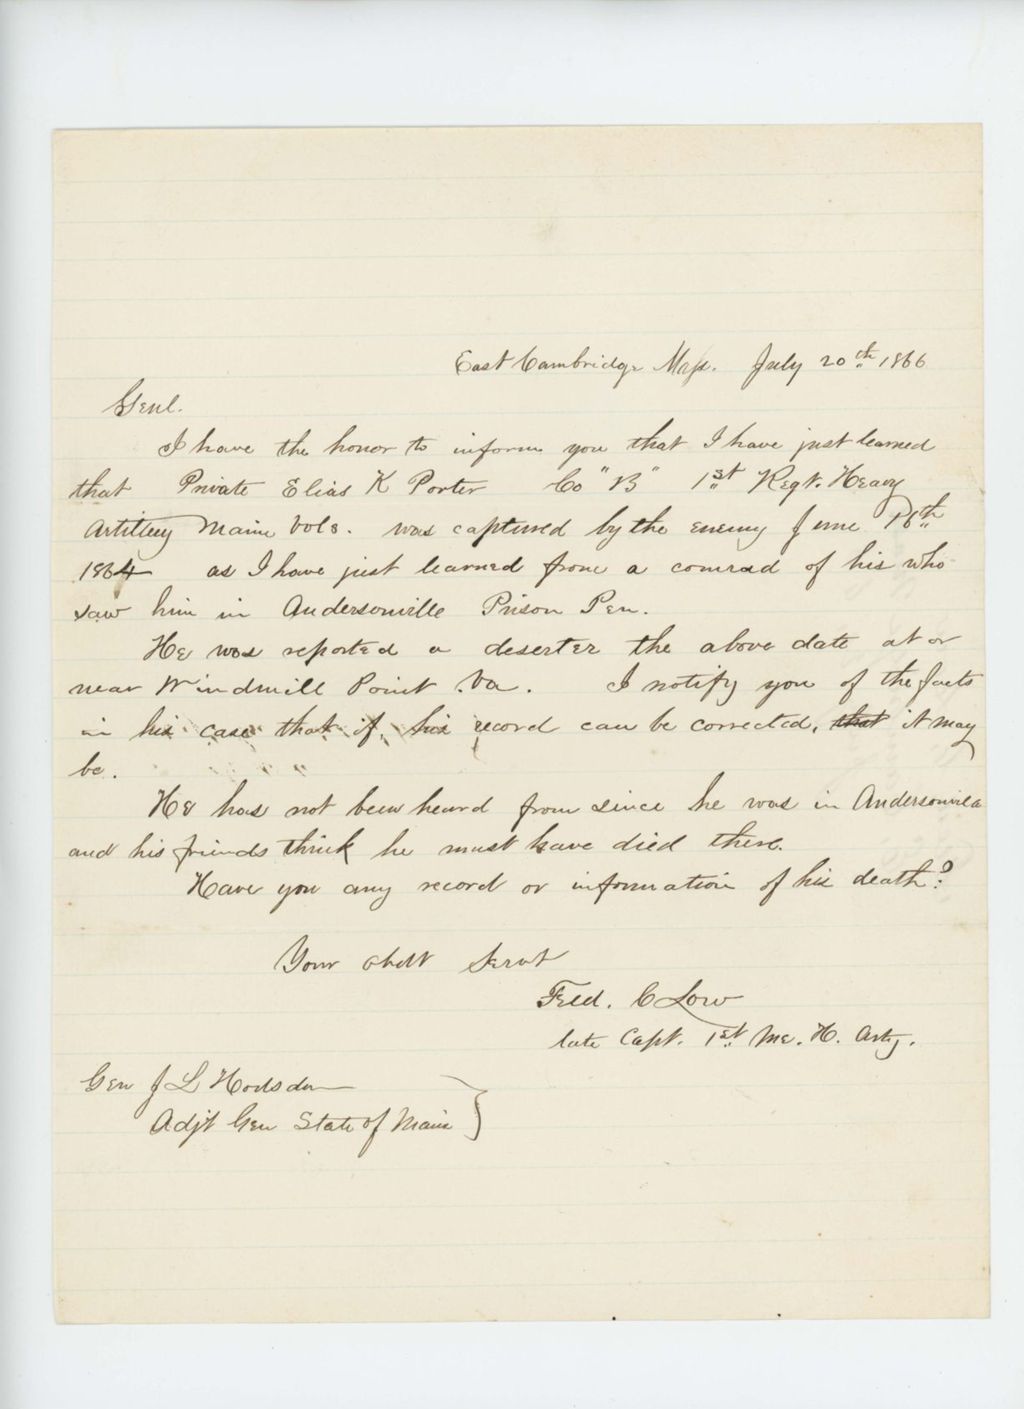 East Cambridge Mass. July 20th 1866
Genl.
I have the honor to inform you that I have just learned
that Private Elias K Porter Co "B" 1st Regt. Heavy
Artillery Maine Vols. was captured by the enemy June 16th
1864 as I have just learned from a comrad of his who
saw him in Andersonville Prison Pen.
He was reported a deserter the above date at or
near Windmill Point Va. I notify you of the facts
in his case that if his record can be corrected, that it may
be.
He has not been heard from since he was in Andersonville
and his friends think he must have died there.
Have you any record or information of his death?
Your obdt Servt
Fred. C Low
late Capt. 1st Me. H. Arty.
Gen J L Hodsdon
Adjt Gen State of Maine